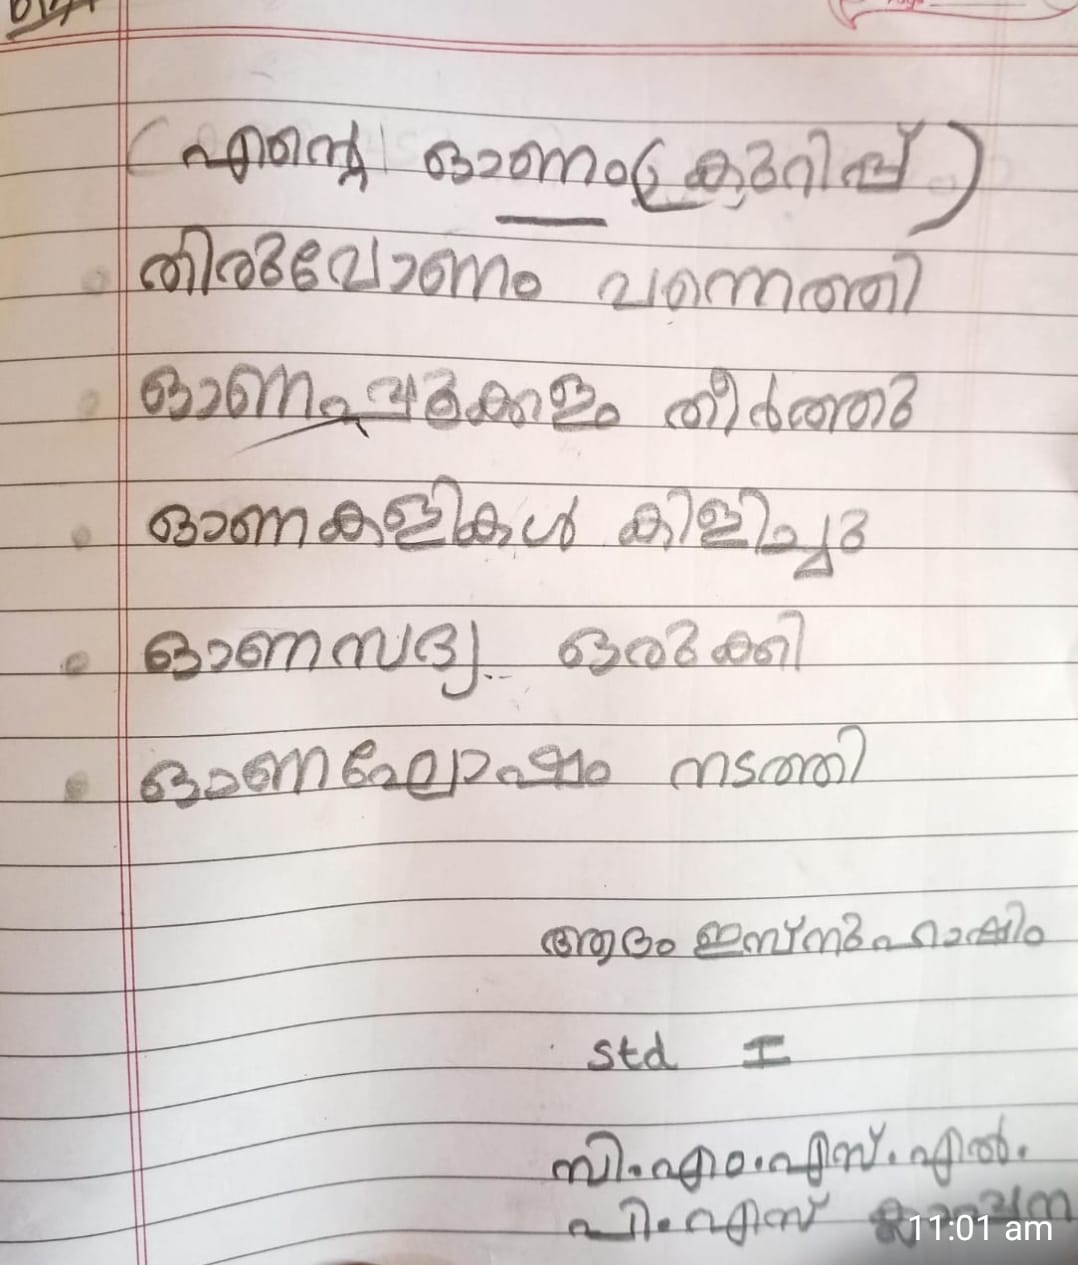 (എന്റെ ഓണം(കുറിപ്പ്)
തിരുവോണം വന്നെത്തി
ഓണപൂക്കളം തീർത്തു
ഓണകളികൾ കിളിച്ചു
ഓണസദ്യ ഒരുക്കി
ഓണഘോഷം നടത്തി
ആദം ഇസ്നുഹാഷിം
std I
സി.എം.എസ്.എൽ.
പി.എസ്
11:01 am